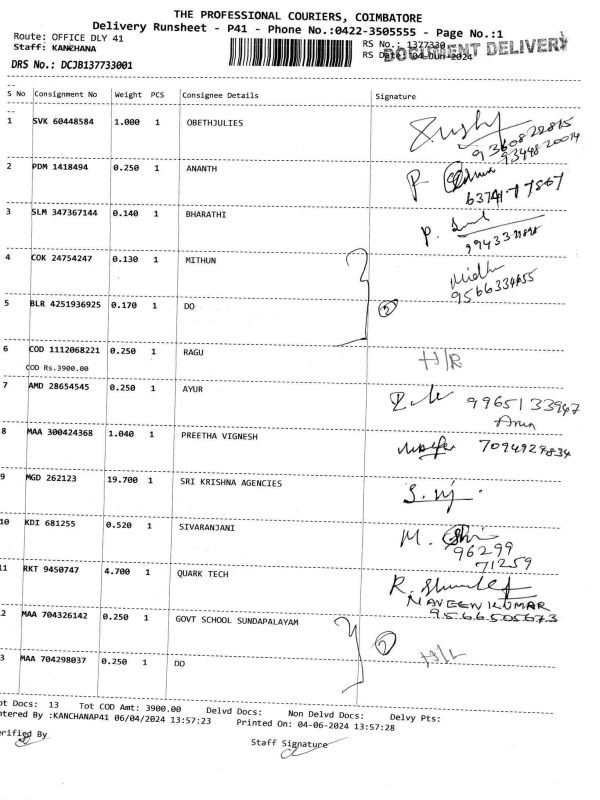 THE PROFESSIONAL COURIERS, COIMBATORE
Delivery Runsheet - P41 - Phone No.:0422-3505555 - Page No.:1
Route: OFFICE DLY 41
RS No.: 1377330
DOCUMENT DELIVERY
Staff: KANCHANA
RS Date: 04-Jun-2024
DRS No.: DCJB137733001
S No Consignment No Weight PCS Consignee Details Signature
1 SVK 60448584 1.000 1 OBETHJULIES
9344820014
2 PDM 1418494 0.250 1 ANANTH
P
6374177567
3 SLM 347367144 0.140 1 BHARATHI
P.
4 COK 24754247 0.130 1 MITHUN
Midhu
5 BLR 4251936925 0.170 1 DO
2
6 COD 1112068221 0.250 1 RAGU H/R
COD Rs.3900.00
7 AMD 28654545 0.250 1 AYUR
9965133947
Arun
8 MAA 300424368 1.040 1 PREETHA VIGNESH
7094929834
9 MGD 262123 19.700 1 SRI KRISHNA AGENCIES
10 KDI 681255 0.520 1 SIVARANJANI
M.
96299
71259
11 RKT 9450747 4.700 1 QUARK TECH
R.
NAVEEN KUMAR
9566505673
2 MAA 704326142 0.250 1 GOVT SCHOOL SUNDAPALAYAM
2
3 MAA 704298037 0.250 1 DO
ot Docs: 13 Tot COD Amt: 3900.00 Delvd Docs: Non Delvd Docs: Delvy Pts:
ntered By :KANCHANAP41 06/04/2024 13:57:23 Printed On: 04-06-2024 13:57:28
erified By
Staff Signature